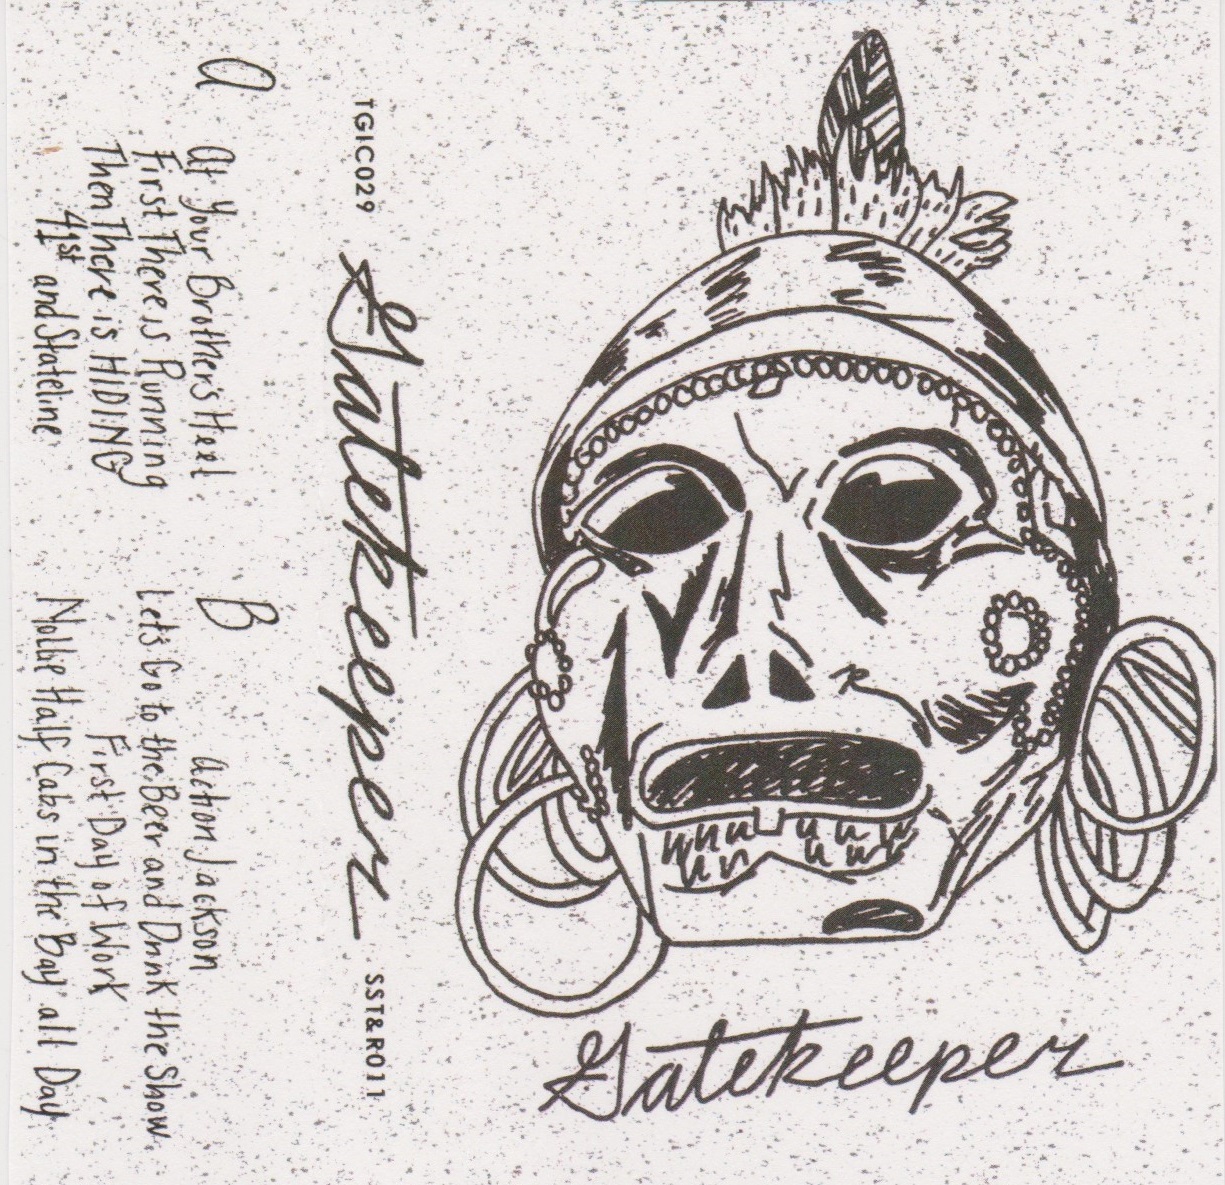 a
At Your Brother's Heel
First There is Running
Then There is HIDING
41st and Stateline
B
Action Jackson
Let's Go to the Beer and Drink the Show
First Day of Work
Nollie Half Cabs in the Bay all Day
TGIC029
Gatekeeper
SST&R011
Gatekeeper